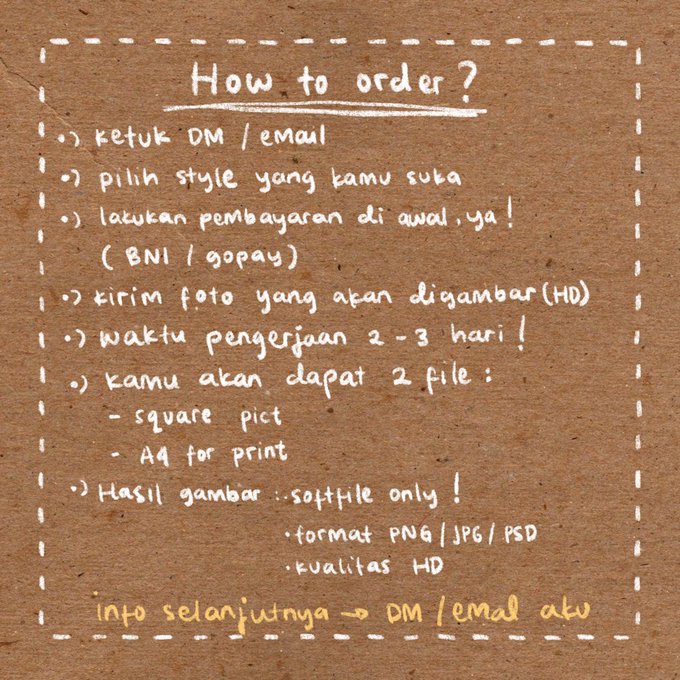 How to order?
•) ketuk DM / email
•) pilih style yang kamu suka
•) lakukan pembayaran di awal, ya!
( BNI / gopay )
•) kirim foto yang akan digambar (HD)
•) waktu pengerjaan 2 - 3 hari!
•) kamu akan dapat 2 file :
- square pict
- A4 for print
•) Hasil gambar : • softfile only!
• format PNG / JPG / PSD
• kualitas HD
info selanjutnya → DM / emal aku